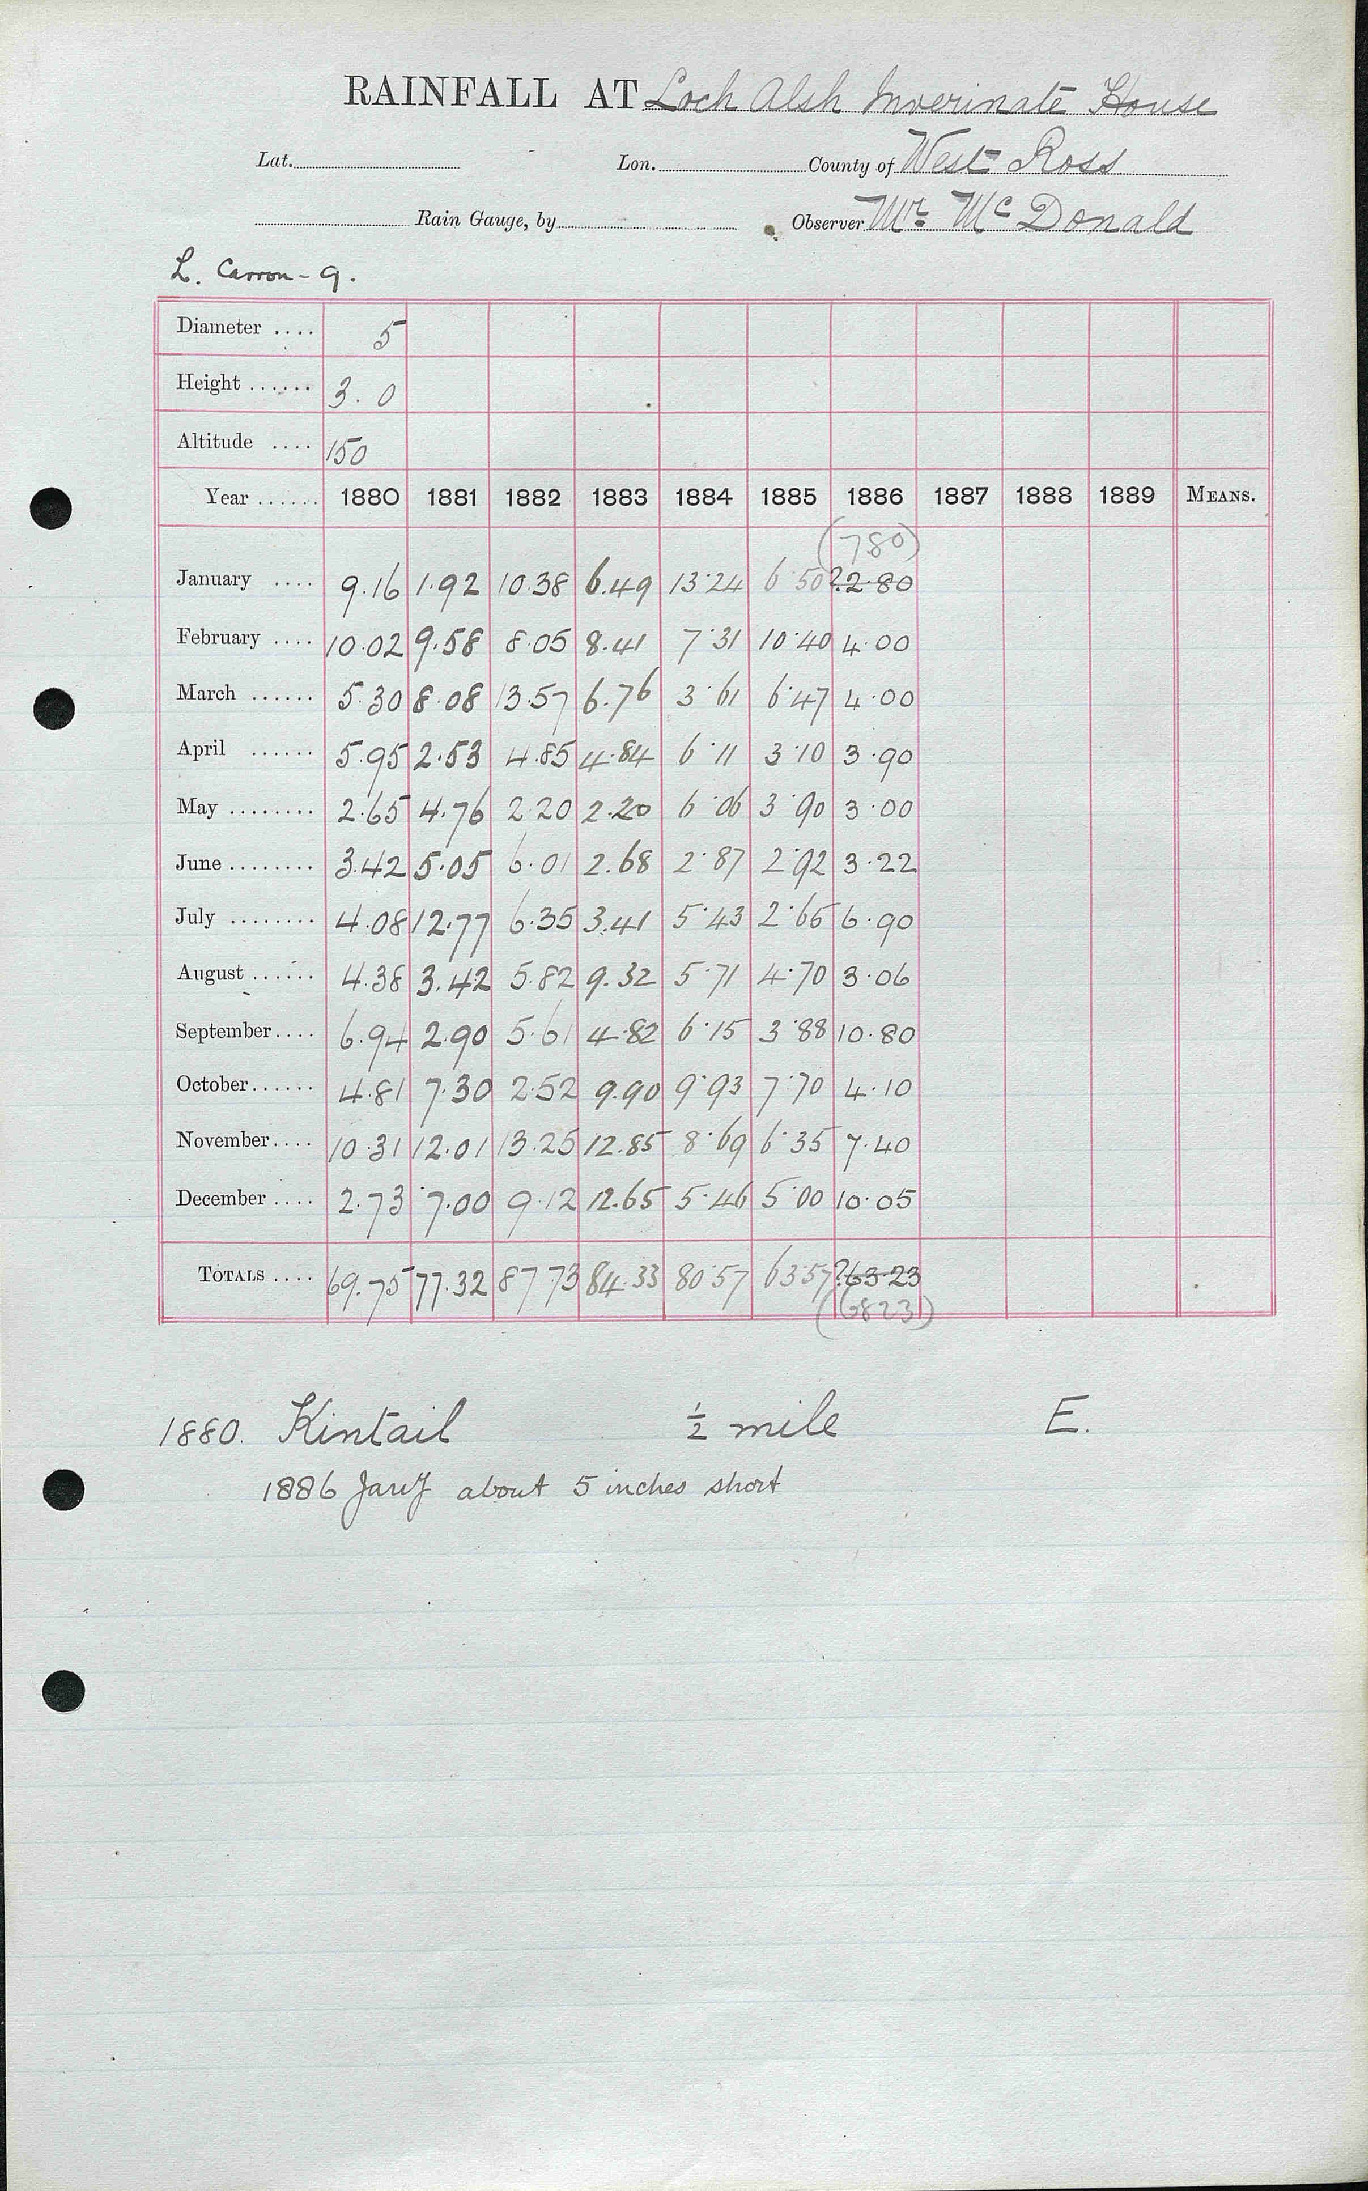 RAINFALL AT Loch Alsh Inverinate House
Lat. Lon. County of West Ross
Rain Gauge, by Observer Mr. Mc Donald
L. Carron - 9.
Diameter .... 5
Height ...... 3.0
Altitude .... 150
Year ...... 1880 1881 1882 1883 1884 1885 1886 1887 1888 1889 MEANS.
(780)
January .... 9.16 1.92 10.38 6.49 13.24 6.50 ?2.80
February .... 10.02 9.58 8.05 8.41 7.31 10.40 4.00
March ...... 5.30 8.08 13.57 6.76 3.61 6.47 4.00
April ...... 5.95 2.53 4.85 4.84 6.11 3.10 3.90
May ........ 2.65 4.76 2.20 2.20 6.06 3.90 3.00
June ........ 3.42 5.05 6.01 2.68 2.87 2.92 3.22
July ........ 4.08 12.77 6.35 3.41 5.43 2.65 6.90
August ...... 4.38 3.42 5.82 9.32 5.71 4.70 3.06
September .... 6.94 2.90 5.61 4.82 6.15 3.88 10.80
October ...... 4.81 7.30 2.52 9.90 9.93 7.70 4.10
November .... 10.31 12.01 13.25 12.85 8.69 6.35 7.40
December .... 2.73 7.00 9.12 12.65 5.46 5.00 10.05
TOTALS .... 69.75 77.32 87.73 84.33 80.57 63.57 ?63.23
(6823)
1880. Kintail ½ mile E.
1886 Jany about 5 inches short